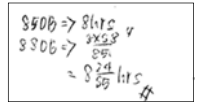 850B => 8hrs
880B => 8×88/85
= 8 24/85 hrs